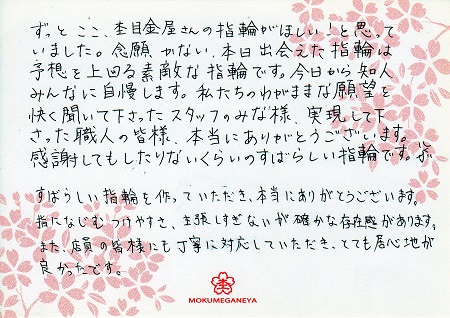 ずっと ここ、杢目金屋さんの指輪がほしい！と思って
いました。念願 かない、本日出会えた指輪は
予想を上回る素敵な指輪です。今日から知人
みんなに自慢します。私たちのわがままな願望を
快く聞いて下さったスタッフのみな様、実現して下
さった職人の皆様、本当にありがとうございます。
感謝してもしたりないくらいのすばらしい指輪です。
すばらしい指輪を作っていただき、本当にありがとうございます。
指になじむつけやすさ、主張しすぎないが確かな存在感があります。
また、店員の皆様にも丁寧に対応していただき、とても居心地が
良かったです。
MOKUMEGANEYA